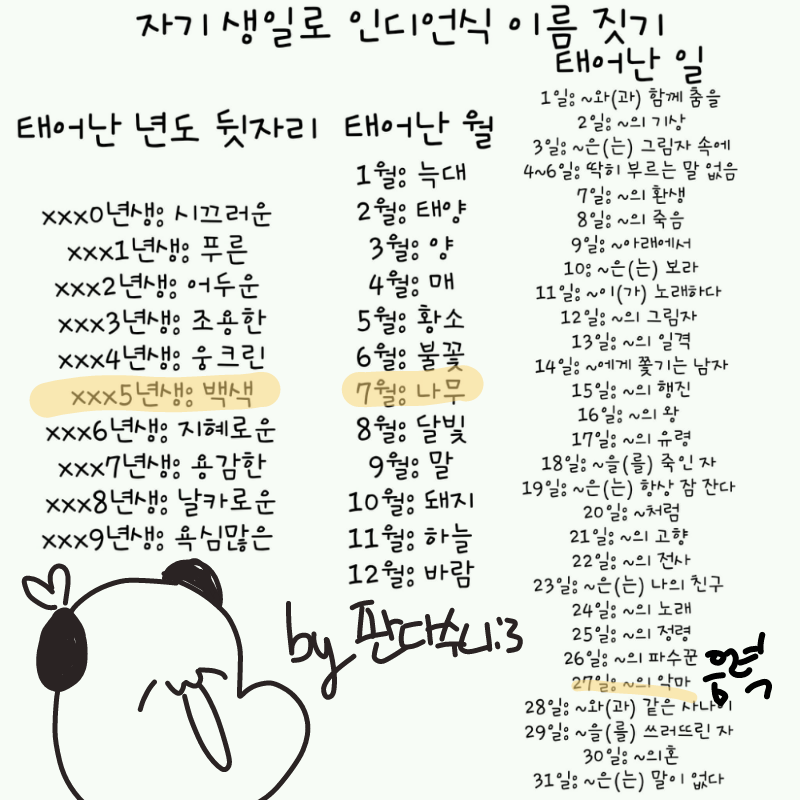 자기 생일로 인디언식 이름 짓기
태어난 년도 뒷자리
xxx0년생: 시끄러운
xxx1년생: 푸른
xxx2년생: 어두운
xxx3년생: 조용한
xxx4년생: 웅크린
xxx5년생: 백색
xxx6년생: 지혜로운
xxx7년생: 용감한
xxx8년생: 날카로운
xxx9년생: 욕심많은
태어난 월
1월: 늑대
2월: 태양
3월: 양
4월: 매
5월: 황소
6월: 불꽃
7월: 나무
8월: 달빛
9월: 말
10월: 돼지
11월: 하늘
12월: 바람
태어난 일
1일: ~와(과) 함께 춤을
2일: ~의 기상
3일: ~은(는) 그림자 속에
4~6일: 딱히 부르는 말 없음
7일: ~의 환생
8일: ~의 죽음
9일: ~아래에서
10: ~은(는) 보라
11일: ~이(가) 노래하다
12일: ~의 그림자
13일: ~의 일격
14일: ~에게 쫓기는 남자
15일: ~의 행진
16일: ~의 왕
17일: ~의 유령
18일: ~을(를) 죽인 자
19일: ~은(는) 항상 잠 잔다
20일: ~처럼
21일: ~의 고향
22일: ~의 전사
23일: ~은(는) 나의 친구
24일: ~의 노래
25일: ~의 정령
26일: ~의 파수꾼
27일: ~의 악마
28일: ~와(과) 같은 사나이
29일: ~을(를) 쓰러뜨린 자
30일: ~의혼
31일: ~은(는) 말이 없다
음력
by 판다수니:3